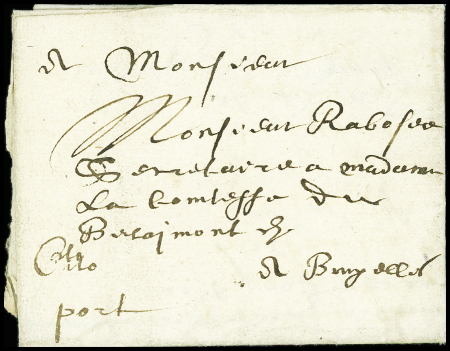 A Monsieur
Monsieur Rabosee
Secretaire a madame
La Comtesse de
Beaimont &
Cito
A Bruxelles
port